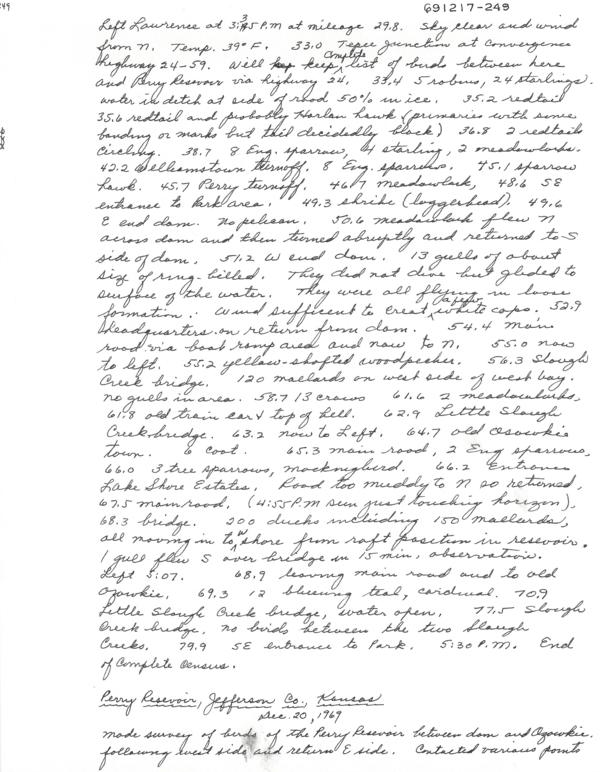 49
691217-249
Left Lawrence at 3:35 P.M at mileage 29.8. Sky clear and wind
from N. Temp. 39°F. 33.0 Tepee Junction at convergence
highway 24-59. Will keep complete list of birds between here
and Perry Resevoir via highway 24. 33.4 5 robins, 24 starlings.
water in ditch at side of road 50% in ice. 35.2 redtail
35.6 redtail and probably Harlan hawk (primaries with some
banding or marks but tail decidedly black) 36.8 2 redtails
circling. 38.7 8 Eng. sparrow, 4 starling, 2 meadowlarks.
42.2 Williamstown turnoff. 8 Eng. sparrows. 45.1 sparrow
hawk. 45.7 Perry turnoff. 46.7 meadowlark, 48.6 SE
entrance to Park area. 49.3 shrike (loggerhead). 49.6
E end dam. No pelican. 50.6 meadowlark flew N
across dam and then turned abruptly and returned to S
side of dam. 51.2 W end dam. 13 gulls of about
size of ring-billed. They did not dive but glided to
surface of the water. They were all flying in loose
formation. Wind sufficient to creat a few white caps. 52.9
Headquarters on return from dam. 54.4 main
road via boat ramp area and now to N. 55.0 now
to left. 55.2 yellow-shafted woodpecker. 56.3 Slough
Creek bridge. 120 mallards on west side of west bay.
no gulls in area. 58.7 13 crows 61.6 2 meadowlarks,
61.8 old train car & top of hill. 62.9 Little Slough
Creek bridge. 63.2 now to Left. 64.7 old Osowkie
town. 6 coot. 65.3 main road, 2 Eng sparrows,
66.0 3 tree sparrows, mockingbird. 66.2 Entrance
Lake Shore Estates, Road too muddy to N so returned,
67.5 main road, (4:55 P.M sun just touching horizon),
68.3 bridge. 200 ducks including 150 mallards,
all moving in to W shore from raft position in resevoir.
1 gull flew S over bridge in 15 min. observation.
Left 5:07. 68.9 leaving main road and to old
Ozowkie, 69.3 12 bluewing teal, cardinal. 70.9
Little Slough Creek bridge, water open. 77.5 Slough
Creek bridge, no birds between the two Slough
Creeks. 79.9 SE entrance to Park. 5:30 P.M. End
of Complete Census.
Perry Resevoir, Jefferson Co., Kansas
Dec. 20, 1969
made survey of birds of the Perry Resevoir between dam and Ozowkie.
following west side and return E side. Contacted various points